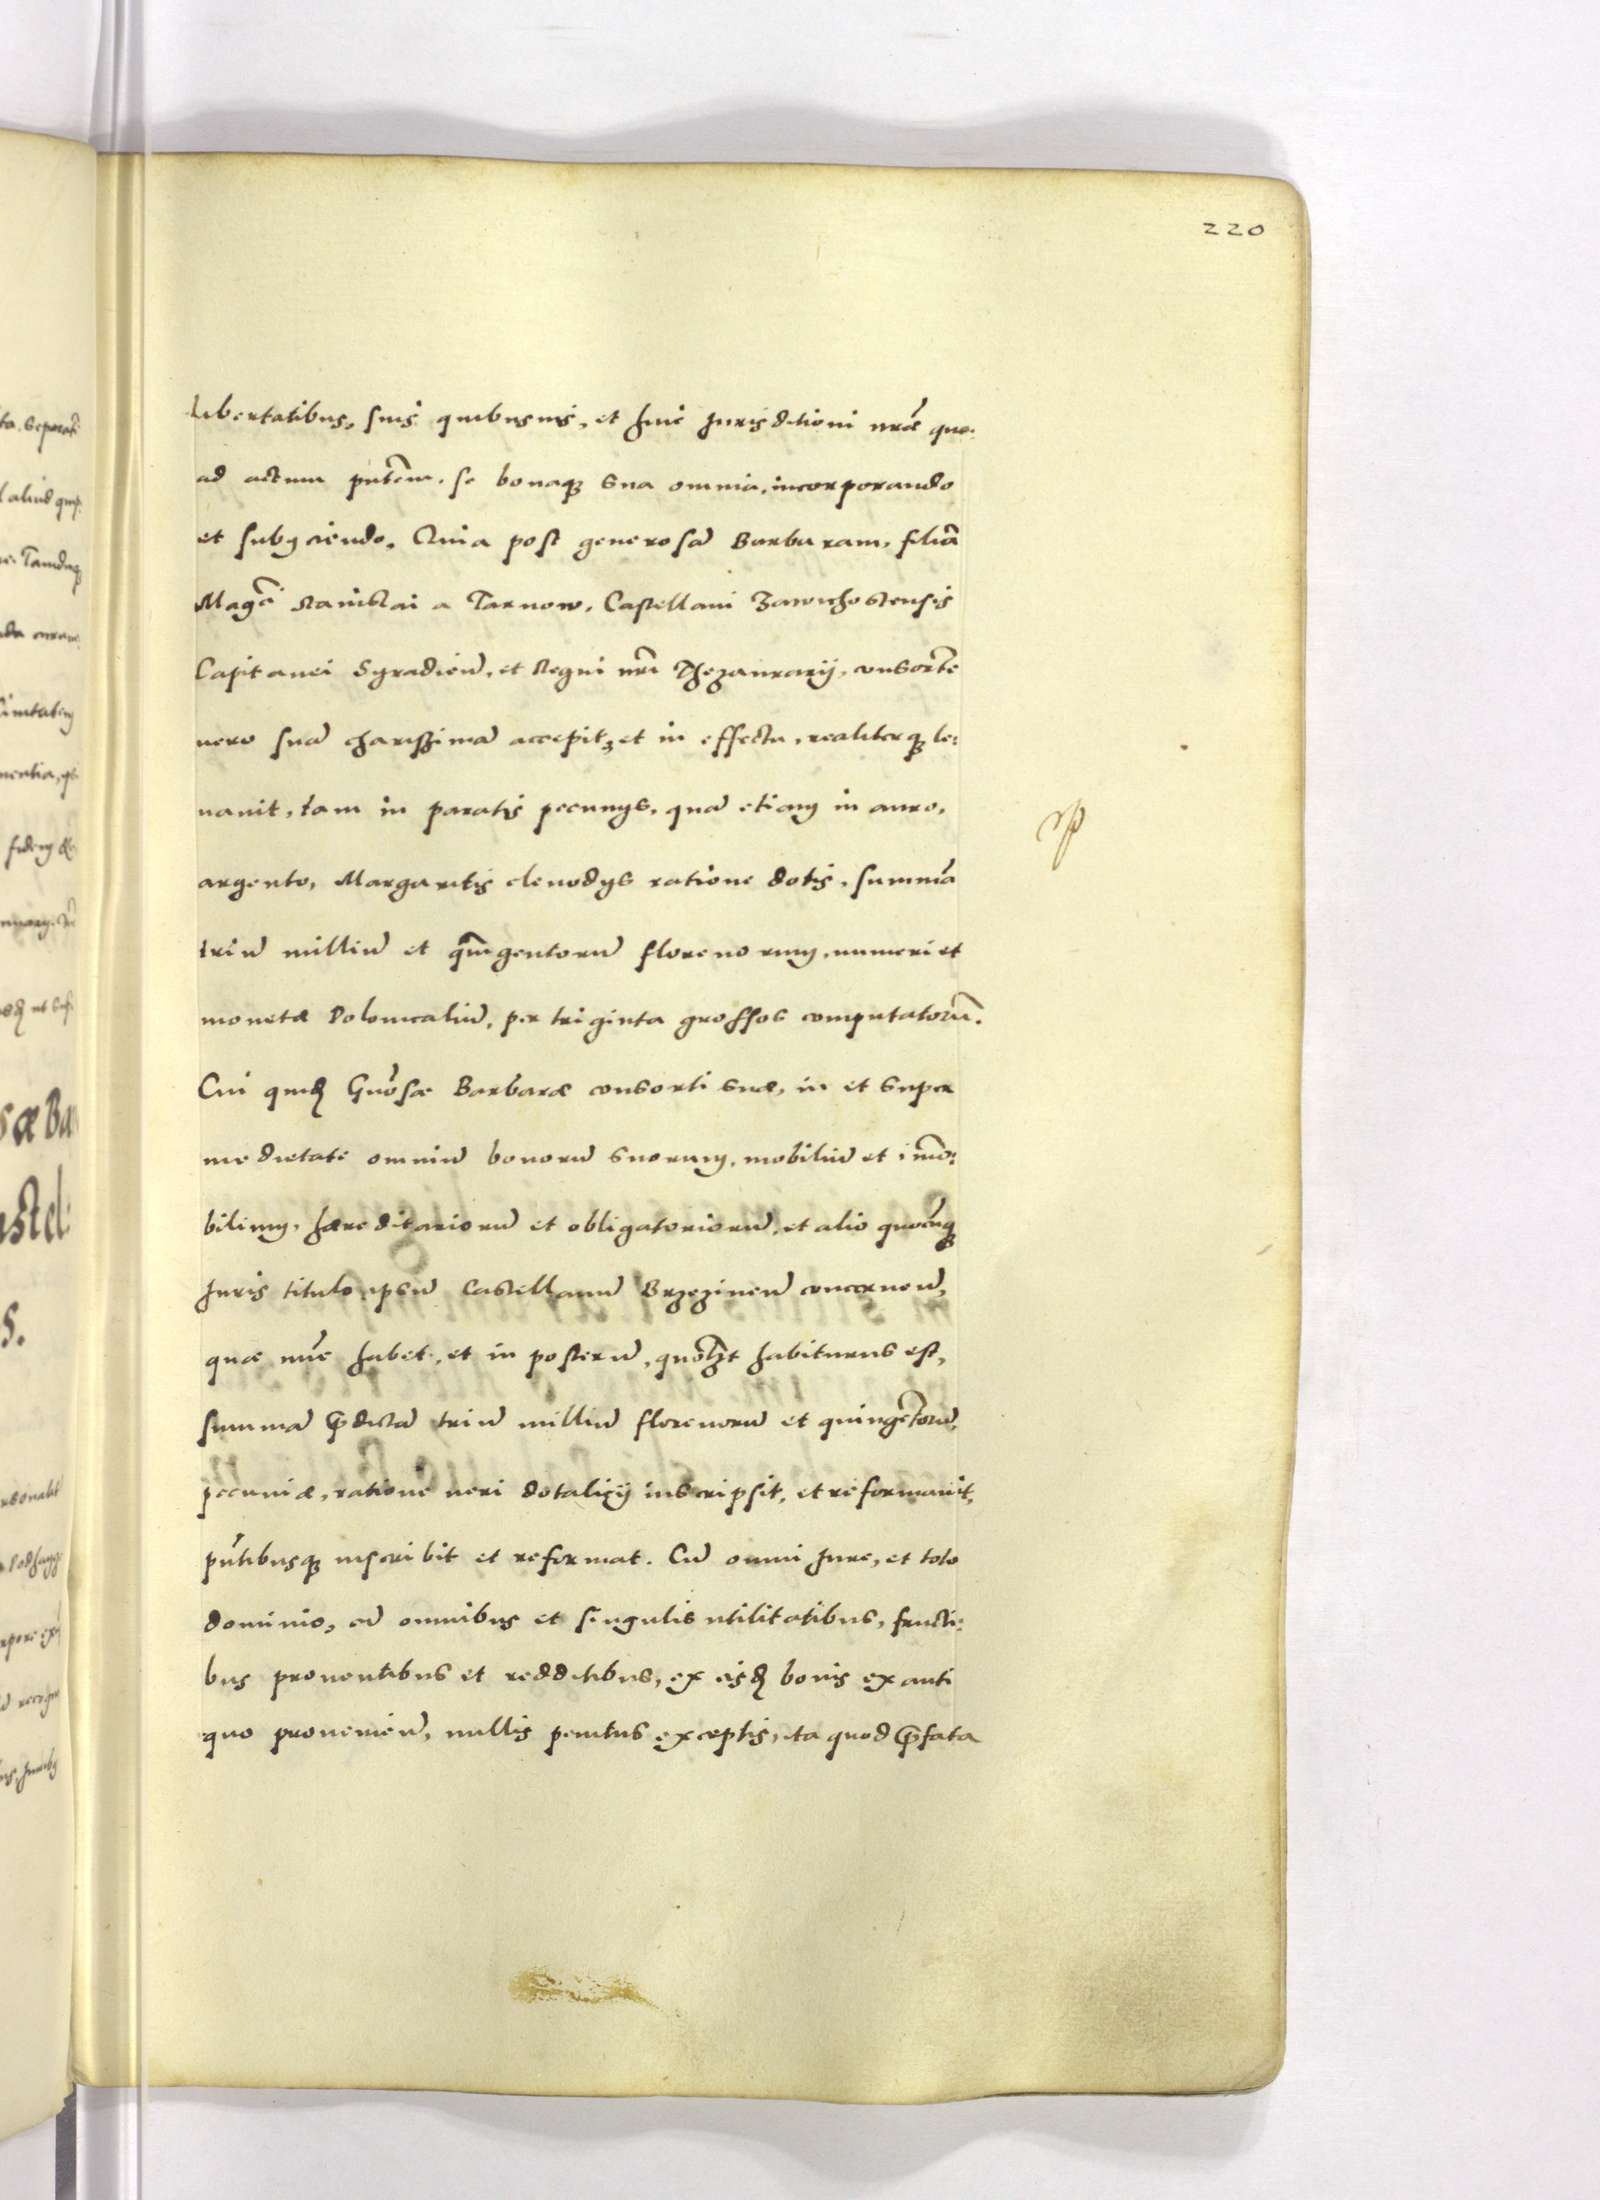 220
libertatibus, suis quibusuis, et huic Jurisditioni nrãe quo:
ad actum pñtem. se bonaqȝ sua omnia, incorporando
et subijciendo. Quia post generosã Barbaram, filiã
Magci Stanislai a Tarnow, Castellani Zawichostensis
Capitanei Syradien̄, et Regni nr̃i Thezaurarij, consortẽ
uero suã charissimã accepit, et in effectu, realiterqȝ le:
uauit, tam in paratis pecunijs, quã etiam in auro,
argento, Margaritis clenodijs ratione dotis, summã
triũ milliũ et quingentorũ florenorum, numeri et
monetæ Polonicaliũ, per triginta grossos computatorũ.
Cui quidẽ Gñosæ Barbaræ consorti suæ, in et super
medietate omniũ bonorũ suorum, mobiliũ et im̃o:
bilium, hæreditariorũ et obligatoriorũ, et alio quocũqȝ
Juris titulo ipsũ Castellanũ Brzezineñ concerneñ,
quæ nũc habet, et in posterũ, quotlȝt habiturus est,
summã p̃dictã triũ milliũ florenorũ et quingẽtorũ
pecuniæ, ratione ueri dotalicij inscripsit, et reformauit,
pñtibusqȝ inscribit et reformat. Cũ omni Jure, et toto
dominio, cũ omnibus et singulis utilitatibus, fructi:
bus prouentibus et redditibus, ex eisdẽ bonis ex anti
quo prouenieñ, nullis penitus exceptis, ita quod p̃fata